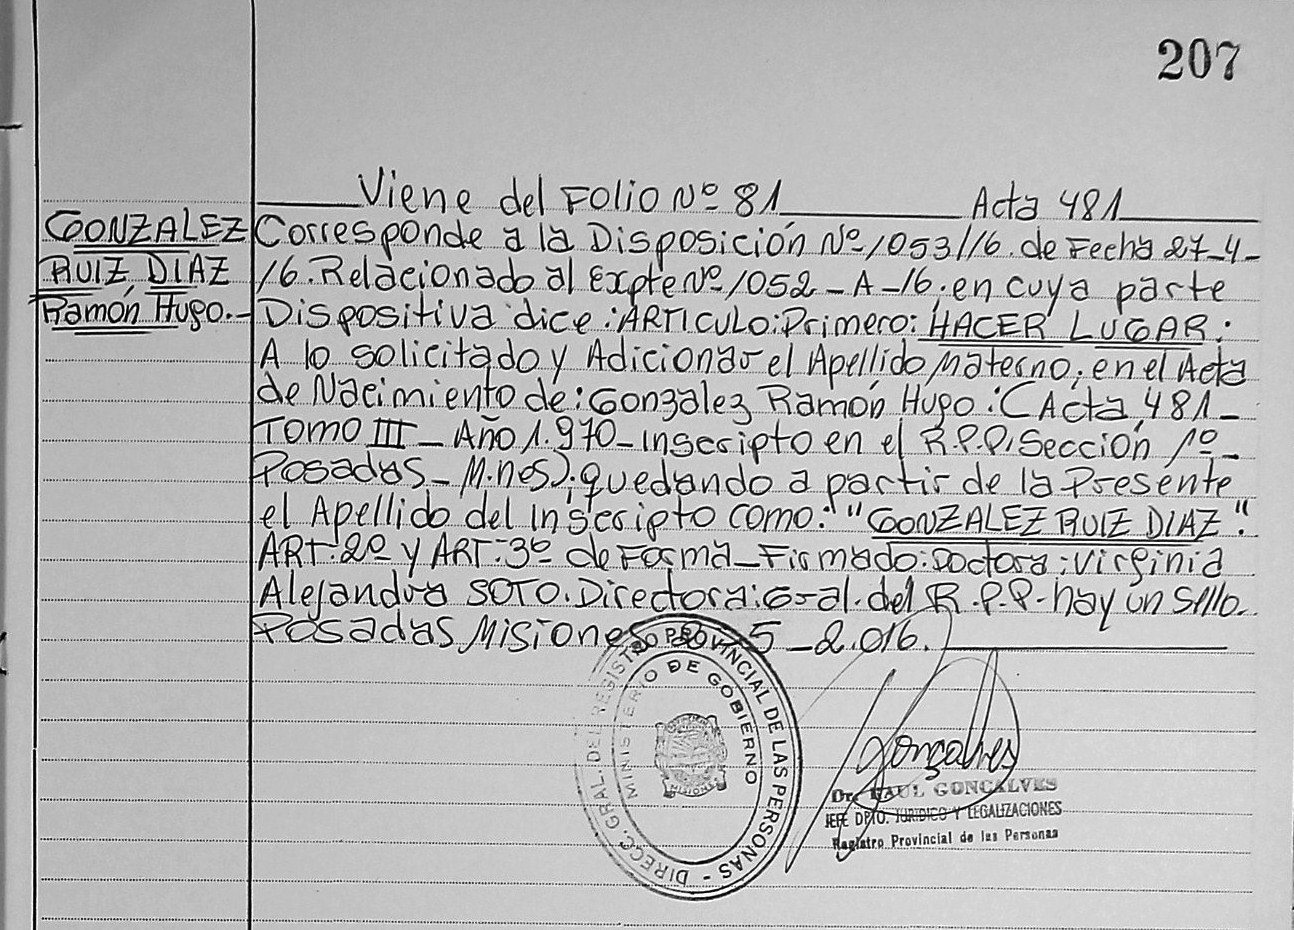 207
Viene del Folio Nº 81 Acta 481
GONZALEZ
RUIZ DIAZ
Ramón Hugo.-
Corresponde a la Disposición Nº 1053/16. de Fecha 27-4-
16. Relacionado al Expte Nº 1052-A-16; en cuya parte
Dispositiva dice: ARTICULO: Primero: HACER LUGAR:
A lo solicitado y Adicionar el Apellido Materno; en el Acta
de Nacimiento de: Gonzalez Ramón Hugo: (Acta 481-
TOMO III - Año 1.970 - Inscripto en el R.P.P. Sección 1º-
Posadas - M.nes); quedando a partir de la Presente
el Apellido del Inscripto como: "GONZALEZ RUIZ DIAZ".
ART: 2º y ART: 3º de Forma - Firmado: Doctora: Virginia
Alejandra SOTO. Directora: Gral. del R.P.P. hay un sello.
Posadas Misiones 5-2.016.
DIRECC. GRAL. DEL REGISTRO PROVINCIAL DE LAS PERSONAS -
MINISTERIO DE GOBIERNO
Gonçalves
Dr. RAUL GONCALVES
JEFE DPTO. JURIDICO Y LEGALIZACIONES
Registro Provincial de las Personas